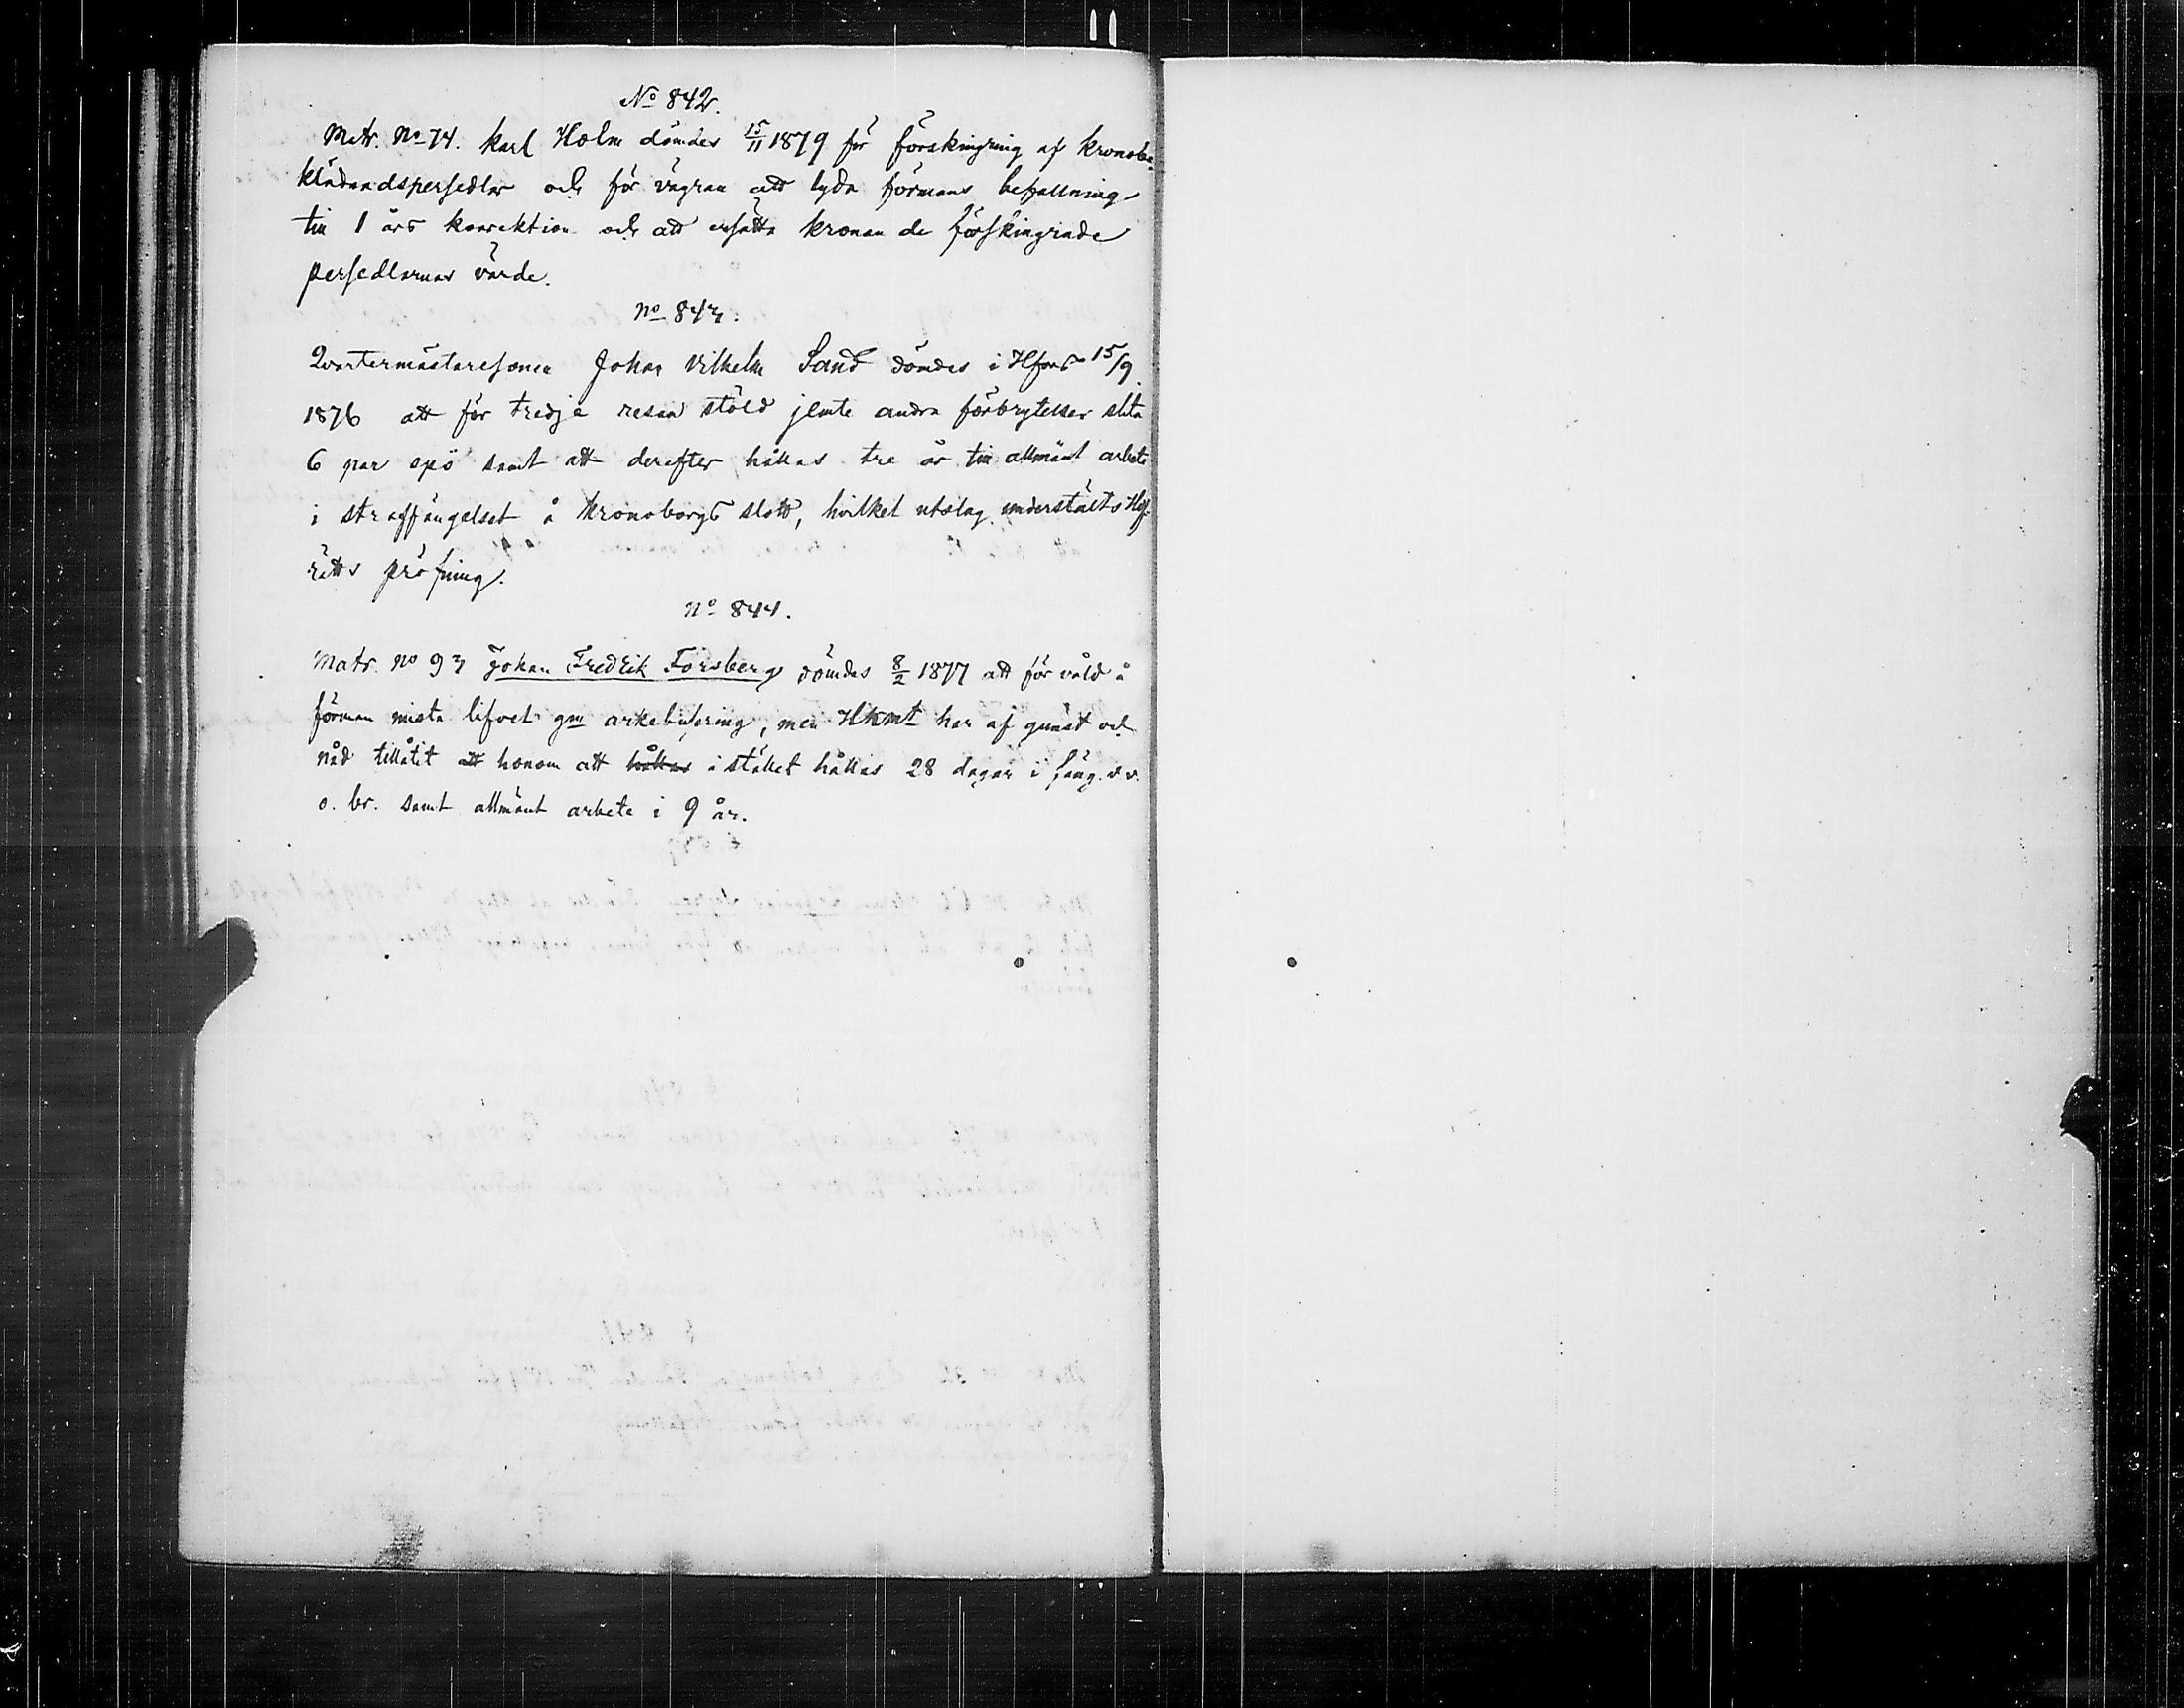 No 842.
Matr. No 74. Karl Holm dömdes 15/11 1879 för förskingring af kronobe-
klädnadspersedlar och för vägran att lyda förmans befallning
till 1 års korrektion och att ersätta kronan de förskingrade
persedlarnas värde.
No 843.
Qvartermästaresonen Johan Vilhelm Sand dömdes i Hfors 15/9
1876 att för tredje resan stöld jemte andra förbrytelser slita
6 par spö samt att derefter hållas tre år till allmänt arbete
i straffängelset å Kronoborgs slott, hvilket utslag underställts Hof-
rätts pröfning.
No 844.
Matr. no 93 Johan Fredrik Forsberg dömdes 8/2 1877 att för våld å
förman mista lifvet gm arkebusering, men HKMt har af gunst och
nåd tillåtit att honom att hållas i stället hållas 28 dagar i fäng. v. v.
o. br. samt allmänt arbete i 9 år.